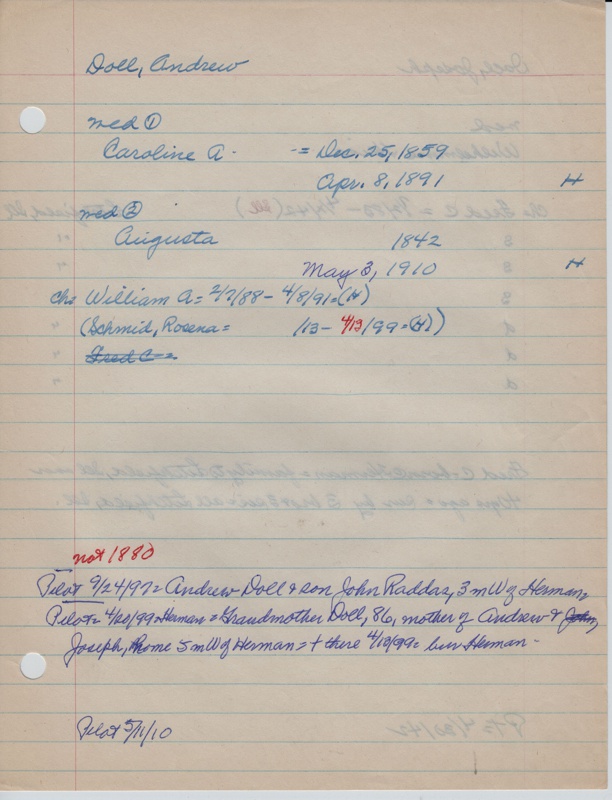 Doll, Andrew
med ①
Caroline A. = Dec. 25, 1859
Apr. 8, 1891 H
med ②
Augusta 1842
May 3, 1910 H
chs William A = 2/7/88 - 4/8/91 = (H)
(Schmid, Rosena = /13 - 4/13/99 = (H))
Fred C =
not 1880
Pilot 9/24/97 = Andrew Doll & son John Raddas, 3 m W of Herman
Pilot = 4/20/99 = Herman = Grandmother Doll, 86, mother of Andrew & John,
Joseph, home 5 m W of Herman = + there 4/10/99 = bur Herman -
Pilot 5/11/10